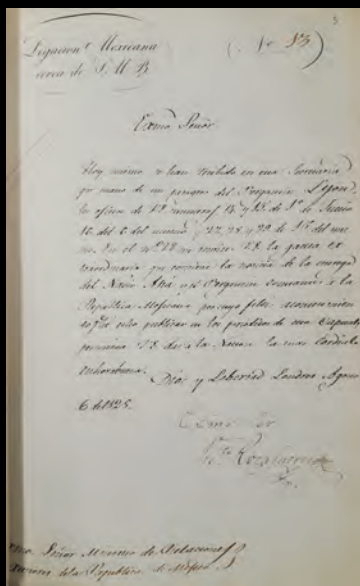 5
Legacion Mexicana
cerca de S. M. B.
(No 83)
Exmo Señor
Hoy mismo se han recibido en esta Secretaria
por mano de un pasagero del Bergantin
los oficios de V.E. numeros 14 y 15 de 1º de Junio
16 del 6 del mismo y 27, 28 y 29 de
En el nº 28 la gaceta ex
traordinaria que contiene la noticia de la entrega
del Navio Asia y el Bergantin Constante a la
Republica Mexicana por cuyo feliz acontecimiento
publicar en los periodicos de esta Capital
V.E. de a la Nacion la mas cordial
enhorabuena.
Dios y Libertad Londres Agosto
6 de 1825.
Exmo Sor
Rocafuerte
Señor Ministro de Relaciones
de la Republica de Mexico